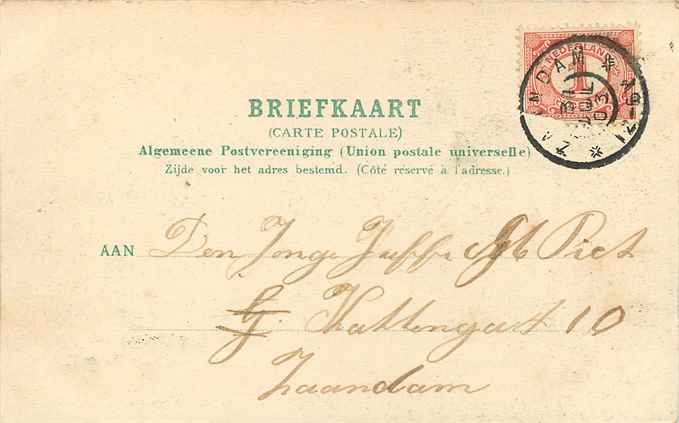 NEDERLAND
1
ZAANDAM
BRIEFKAART
(CARTE POSTALE)
Algemeene Postvereeniging (Union postale universelle)
Zijde voor het adres bestemd. (Côté réservé à l'adresse.)
AAN Den Jonge Juffr Piet
G. Kattengat 10
Zaandam